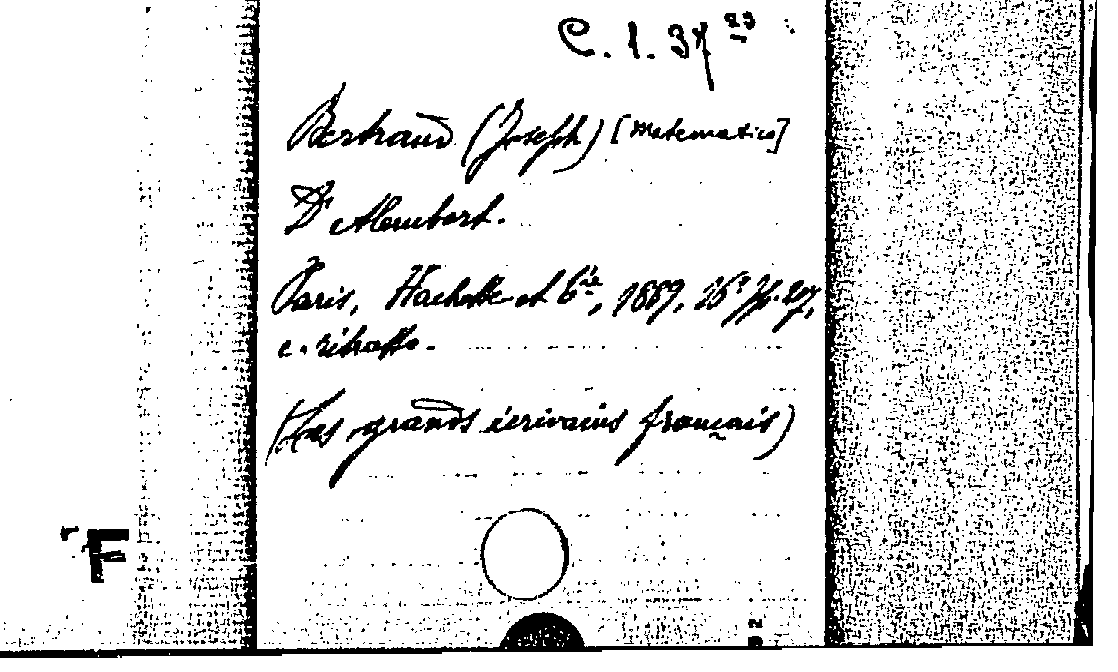 C. 1. 37 23
Bertrand (Joseph) [Matematico]
D'Alembert.
Paris, Hachette et C.ie, 1889, 16° pp. 207,
c. ritratto.
(Les grands écrivains français)
F